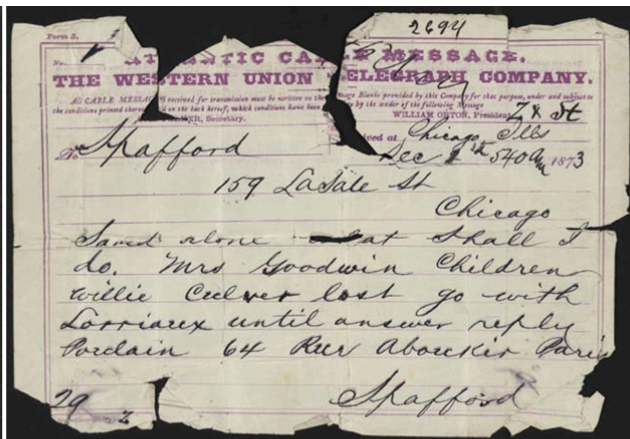 2694
Form 2.
ATLANTIC CABLE MESSAGE.
THE WESTERN UNION TELEGRAPH COMPANY.
ALL CABLE MESSAGES received for transmission must be written on the Message Blanks provided by this Company for that purpose, under and subject to
the conditions printed thereon on the back hereof, which conditions have been by the sender of the following Message
Secretary. WILLIAM ORTON, President
Received at Chicago Ills
To Spafford Dec 540 am 1873
159 LaSale St
Chicago
Saved alone what shall I
do. Mrs Goodwin Children
Willie Culver lost go with
Lorriaux until answer reply
Porclain 64 Rue Aboukir Paris
Spafford
29